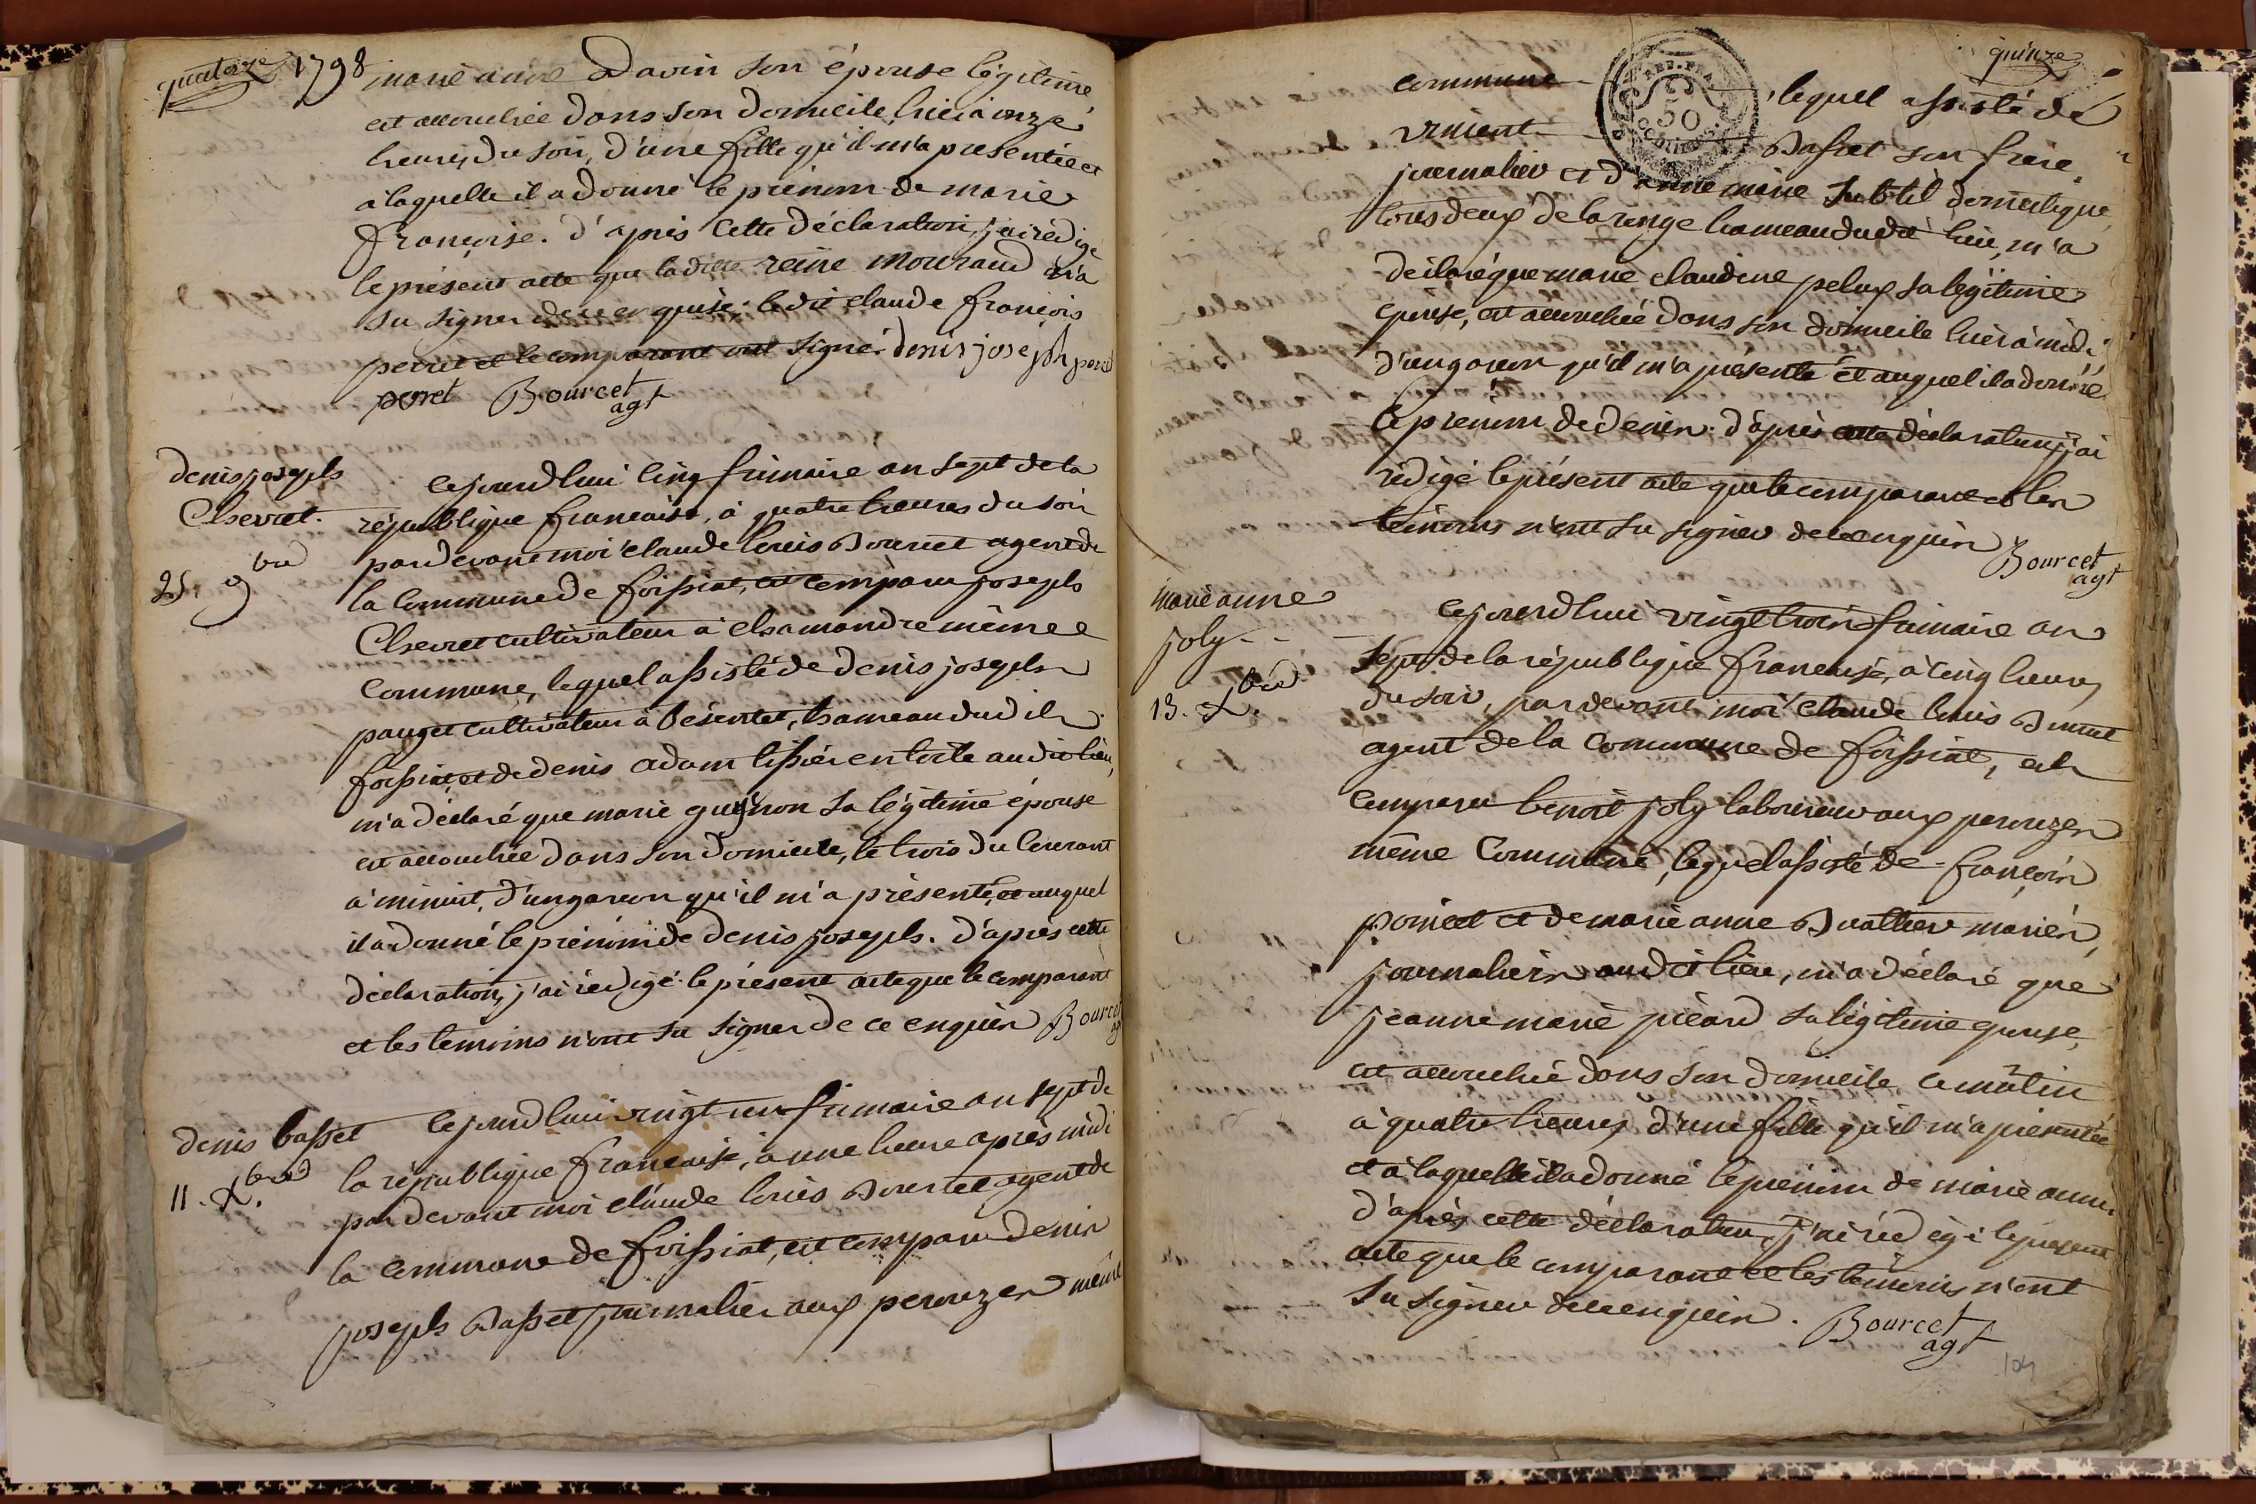 quatorze 1798
marie anne Davin son épouse légitime,
est accouchée dans son domicile, hier à onze
heures du soir, d'une fille qu'il m'a présentée et
à laquelle il a donné le prénom de marie
françoise. d'après cette déclaration, j'ai rédigé
le présent acte que la dite reine mouraud n'a
su signer de ce enquise; le dit claude françois
perret et le comparant ont signé. denis joseph perret
peret Bourcet
agt
denis joseph
Chevret.
25 9bre
cejourdhui cinq frimaire an sept de la
république francaise, à quatre heures du soir
pardevant moi claude louis Bourcet agent de
la commune de foissiat, est comparu joseph
Chevret cultivateur à chamandre même
commune, lequel assisté de denis joseph
pauget cultivateur à besentet, hameau dud it
foissiat, et de denis adam tissier en toile audit lieu,
m'a déclaré que marie guynon sa légitime épouse
est accouchée dans son domicile, le trois du courant
à minuit, d'un garcon qu'il m'a présenté, et auquel
il a donné le prénom de denis joseph. d'après cette
déclaration, j'ai rédigé le présent acte que le comparant
et les temoins n'ont su signer de ce enquis Bourcet
ag
denis basset
11. Xbre
cejourdhui vingt un frimaire an sept de
la république francaise, à une heure après midi
par devant moi claude louis Bourcet agent de
la commune de foissiat, est comparu denis
joseph Basset journalier aux perouzes même
quinze
commune lequel assisté de
vincent Basset son frère,
journalier et d'anne marie subtil domestique
tous deux de la renge hameau dudit lieu, m'a
déclaré que marie claudine pelux sa légitime
épouse, est accouchée dans son domicile hier à midi
d'un garcon qu'il m'a présenté et auquel il a donné
le prenom de denis. d'après cette déclaration, j'ai
rédigé le présent acte que le comparant et les
témoins n'ont su signer de ce enquis
Bourcet
agt
REP. FRA.
50
CENTIMES
marie anne
joly
13. Xbre
cejourdhui vingt trois frimaire an
sept de la république francaise, à cinq heures
du soir, par devant moi claude louis Bourcet
agent de la commune de foissiat, est
comparu benoit joly laboureur aux perouzes
même commune, lequel assisté de françois
poncet et de marie anne Buattier mariés,
journaliers audit lieu, m'a déclaré que
jeanne marie picard sa légitime epouse,
est accouchée dans son domicile ce matin
à quatre heures, d'une fille qu'il m'a présentée
et à laquelle il a donné le prénom de marie anne.
d'après cette déclaration, j'ai rédigé le présent
acte que le comparant et les témoins n'ont
su signer de ce enquis. Bourcet
agt
104